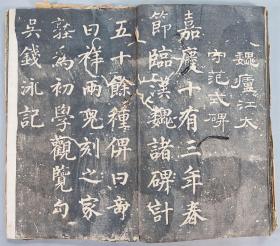 魏廬江太
守范式碑
嘉慶十有三年春
節臨漢魏諸碑計
五十餘種俾日部
日祥兩兒刻之家
塾為初學觀覽句
吳錢泳記